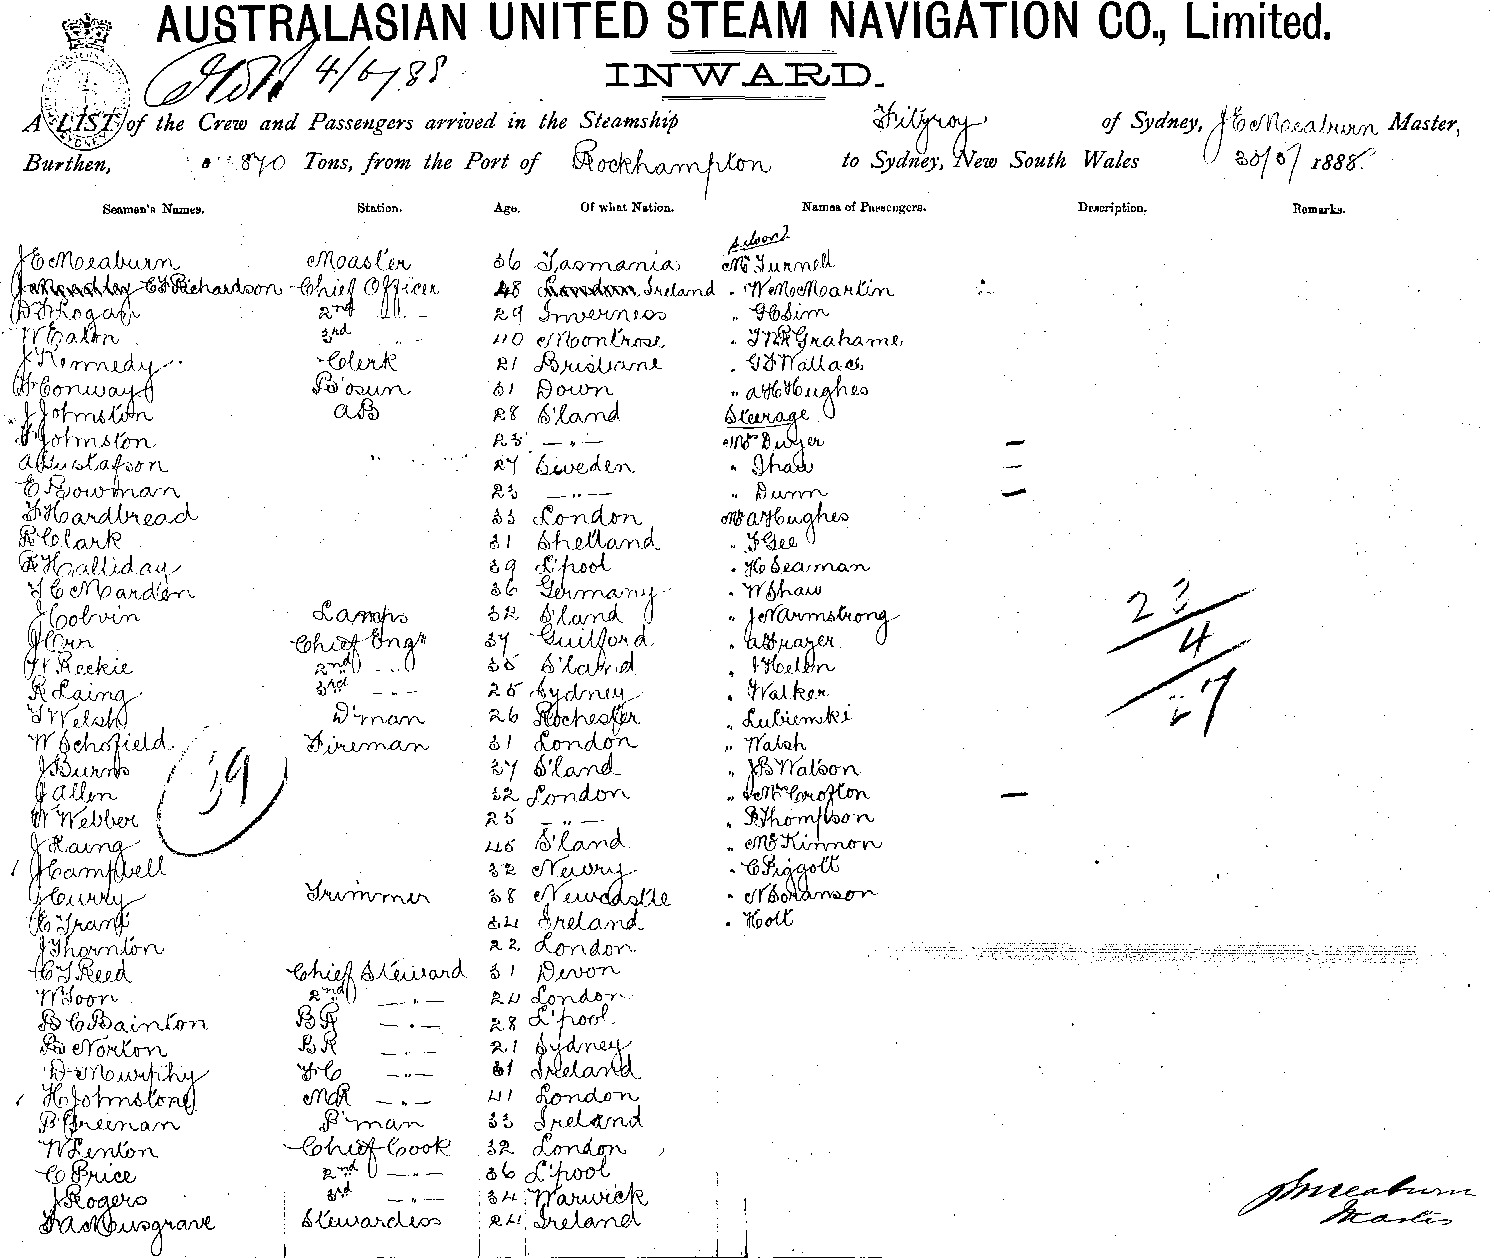 AUSTRALASIAN UNITED STEAM NAVIGATION CO., Limited.
4/6/88
INWARD.
A LIST of the Crew and Passengers arrived in the Steamship Fitzroy of Sydney, J E Meaburn Master,
Burthen, 870 Tons, from the Port of Rockhampton to Sydney, New South Wales 30/5/ 1888
Seamen's Names. Station. Age. Of what Nation. Names of Passengers. Description. Remarks.
Saloon
J E Meaburn Master 36 Tasmania Mr Turnell
C T Richardson Chief Officer 48 Ireland " W McMartin
Logan 2nd " 29 Inverness " G C Sim
W Eaton 3rd " 40 Montrose " T W R Grahame
J Kennedy Clerk 21 Brisbane " G D Wallace
Conway B'osun 31 Down " A H Hughes
J Johnston AB 28 S'land Steerage
Johnston 23 — " — Mr Dwyer —
A Gustafson " 27 Sweden " Shaw —
C Bowman 23 — " — " Dunn —
Hardbread 33 London Mr A Hughes
R Clark 31 Shetland " F Gee
Halliday 39 L'pool " H Seaman
Marden 36 Germany " W Shaw
J Colvin Lamps 32 S'land " J N Armstrong
J Orr Chief Engr 37 Guilford " A Frazer
Reekie 2nd — " — 35 S'land " Helen
R Laing 3rd — " — 25 Sydney " Walker
T Welsh D'man 26 Rochester " Lubienski
W Schofield Fireman 31 London " Walsh
J Burns 37 S'land " J B Watson
J Allen 32 London " McCrofton —
W Webber 25 — " — " Thompson
J Laing 45 S'land " McKinnon
J Campbell 32 Newry " C Piggott
J Curry Trimmer 38 Newcastle " N Soranson
Grant 34 Ireland " Holt
J Thornton 22 London
C T Reed Chief Steward 31 Devon
W Toon 2nd — " — 24 London
B C Bainton BR — " — 28 L'pool
B Norton BR — " — 21 Sydney
D Murphy FC — " — 31 Ireland
H Johnstone MR — " — 41 London
B Breenan P'man 33 Ireland
W Lenton Chief Cook 32 London
C Price 2nd — " — 36 L'pool
J Rogers 3rd — " — 34 Warwick
Musgrave Stewardess 24 Ireland
39
23
4
27
J E Meaburn
Master